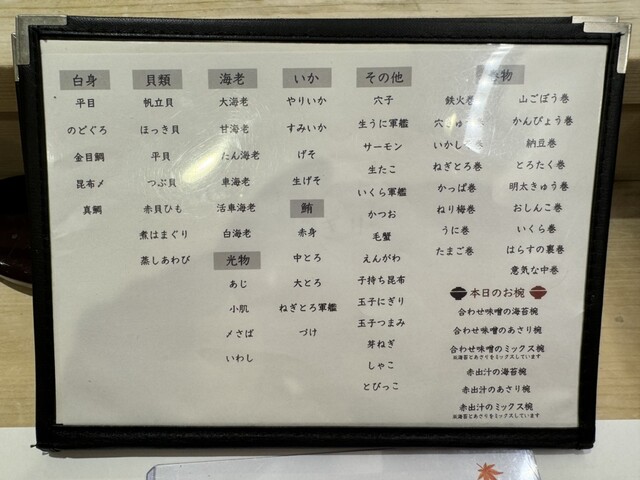 白身
平目
のどぐろ
金目鯛
昆布〆
真鯛
貝類
帆立貝
ほっき貝
平貝
つぶ貝
赤貝ひも
煮はまぐり
蒸しあわび
海老
大海老
甘海老
たん海老
車海老
活車海老
白海老
光物
あじ
小肌
〆さば
いわし
いか
やりいか
すみいか
げそ
生げそ
鮪
赤身
中とろ
大とろ
ねぎとろ軍艦
づけ
その他
穴子
生うに軍艦
サーモン
生たこ
いくら軍艦
かつお
毛蟹
えんがわ
子持ち昆布
玉子にぎり
玉子つまみ
芽ねぎ
しゃこ
とびっこ
物
鉄火巻
いかし
ねぎとろ巻
かっぱ巻
ねり梅巻
うに巻
たまご巻
山ごぼう巻
かんぴょう巻
納豆巻
とろたく巻
明太きゅう巻
おしんこ巻
いくら巻
はらすの裏巻
意気な中巻
本日のお椀
合わせ味噌の海苔椀
合わせ味噌のあさり椀
合わせ味噌のミックス椀
※海苔とあさりをミックスしています
赤出汁の海苔椀
赤出汁のあさり椀
赤出汁のミックス椀
※海苔とあさりをミックスしています